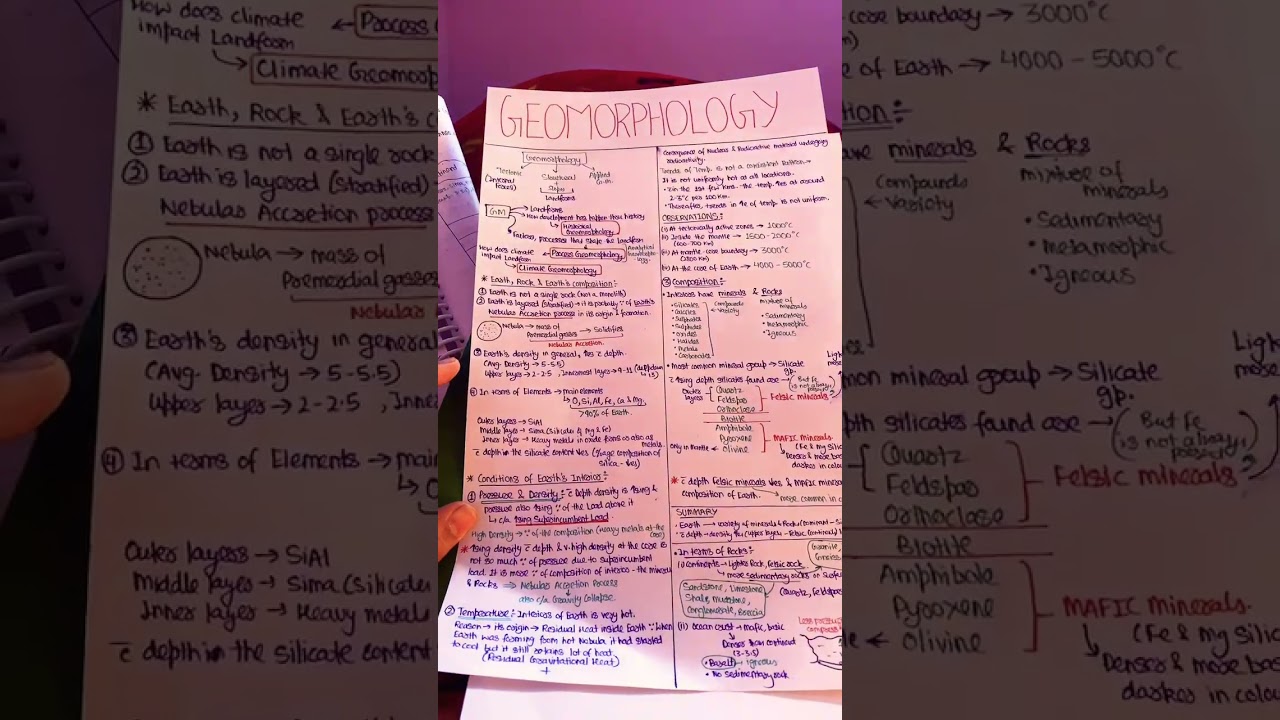 GEOMORPHOLOGY
Geomorphology
Tectonic
(Internal
forces)
Structural
Landforms
Applied
G.M.
GM
→ Landforms
→ How development has hapen thru history
↳ Historical
Geomorphology
→ Factors, processes that shape the landform
How does climate
impact Landform
← Process Geomorphology
↳ Climate Geomorphology
* Earth, Rock & Earth's composition:-
① Earth is not a single rock (Not a monolith)
② Earth is layered (stratified) → it is probably ∵ of Earth's
Nebular Accretion process in its origin & formation.
Nebula → mass of
Premordial gasses → Solidifies
Nebular Accretion.
③ Earth's density in general, ↑es c̄ depth.
(Avg. Density → 5-5.5)
Upper layer → 2-2.5, Innermost layer → 9-11
④ In terms of Elements → main elements
↳ O, Si, Al, Fe, Ca & Mg.
>90% of Earth.
Outer layers → SiAl
Middle layer → Sima (Silicates of Mg & Fe)
Inner layer → Heavy metals in oxide from or also as
metals.
c̄ depth in the silicate content ↓es (%age composition of
Silica - ↓es)
* Conditions of Earth's Interior:-
① Pressure & Density:- c̄ depth density is ↑sing &
pressure also ↑sing ∵ of the Load above it
↳ c/a ↑sing Superincumbent Load.
High Density → ∵ of the composition (Heavy metals at the
core)
* ↑sing density c̄ depth & v. high density at the core is
not so much ∵ of pressure due to superincumbent
load. It is more ∵ of composition of interior - the minerals
& Rocks ⇒ Nebular Accretion Process
↓
also c/a Gravity Collapse
② Temperature:- Interiors of Earth is very hot.
Reason → its origin → Residual heat inside Earth ∵ When
Earth was forming from hot Nebula it had started
to cool but it still retains lot of heat.
(Residual Gravitational Heat)
+
Consequence of Nucleus & Radioactive material undergoing
radioactivity.
Trends of Temp. is not a consistent pattern →
It is not uniformly hot at all locations.
• In the 1st few Kms - the temp. ↑es at around
2-3°C per 100 Km.
• Thereafter, trends in ↑e of temp. is not uniform.
OBSERVATIONS:-
(i) At tectonically active zones → 1000°C
(ii) Inside the mantle → 1500-2000°C
(600-700 Km)
(iii) At mantle-core boundary → 3000°C
(iv) At the core of Earth → 4000-5000°C
③ Composition:-
• Interiors have minerals & Rocks
• Silicates
• Sulphates
• Sulphides
• Oxides
• Halides
• Metals
• Carbonates
Compounds
← Variety
mixture of
minerals
• Sedimentary
• metamorphic
• Igneous
• Most common mineral group → Silicate
gp.
c̄ ↑sing depth silicates found are → (But Fe
is not always
present)
Outer
layers
Quartz
Feldspar
Orthoclase
Felsic minerals
Biotite
Amphibole
Pyroxene
Only in Mantle ← Olivine
MAFIC minerals
(Fe & Mg Sili
Denser & more bas
darker in colou
* c̄ depth Felsic minerals ↓es & MAFIC mineral
composition of Earth.
more common in c
SUMMARY
• Earth → variety of minerals & Rocks (Dominant - S
• c̄ depth → density ↑es (upper layer - Felsic (Continents)
• In terms of Rocks:-
(i) Continents → Lighter Rock, Felsic rock
→ more sedimentary rocks on surf
Sandstone, Limestone
Shale, Mudstone,
Conglomerate, Breccia
Granite,
(Quartz, Feldspar
(ii) Ocean crust → mafic, basic
↓
Denser than continent
(3-3.5)
• Basalt → Igneous
• No sedimentary rock
Less pressure
compress
How does climate
impact Landform
← Process G
↳ Climate Geomorp
* Earth, Rock & Earth's c
① Earth is not a single rock
② Earth is layered (stratified)
Nebular Accretion process
Nebula → mass of
Premordial gasses
Nebular
③ Earth's density in general
(Avg. Density → 5-5.5)
Upper layer → 2-2.5, Inne
④ In terms of Elements → main
Outer layers → SiAl
Middle layer → Sima (Silicates
Inner layer → Heavy metals
c̄ depth in the silicate content
core boundary → 3000°C
e of Earth → 4000-5000°C
tion:-
ave minerals & Rocks
Compounds
← Variety
mixture of
minerals
• Sedimentary
• metamorphic
• Igneous
mon mineral group → Silicate
gp.
pth silicates found are → (But Fe
is not always
present)
Quartz
Feldspar
Orthoclase
Felsic minerals
Biotite
Amphibole
Pyroxene
← Olivine
MAFIC minerals.
(Fe & Mg Silic
Denser & more bas
darker in colou